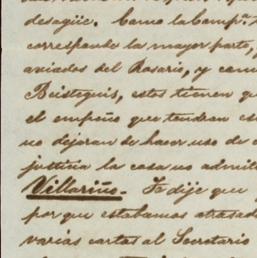 desagüe. Como la Comp.ª
corresponde la mayor parte, y
aviados del Rosario, y com
Beisteguis, estos tienen qu
el empeño que tendran es
no dejaran de hacer uso de
justicia la cosa no admit
Villariño. Te dije que
por que estabamos atrasad
varias cartas al Secretario